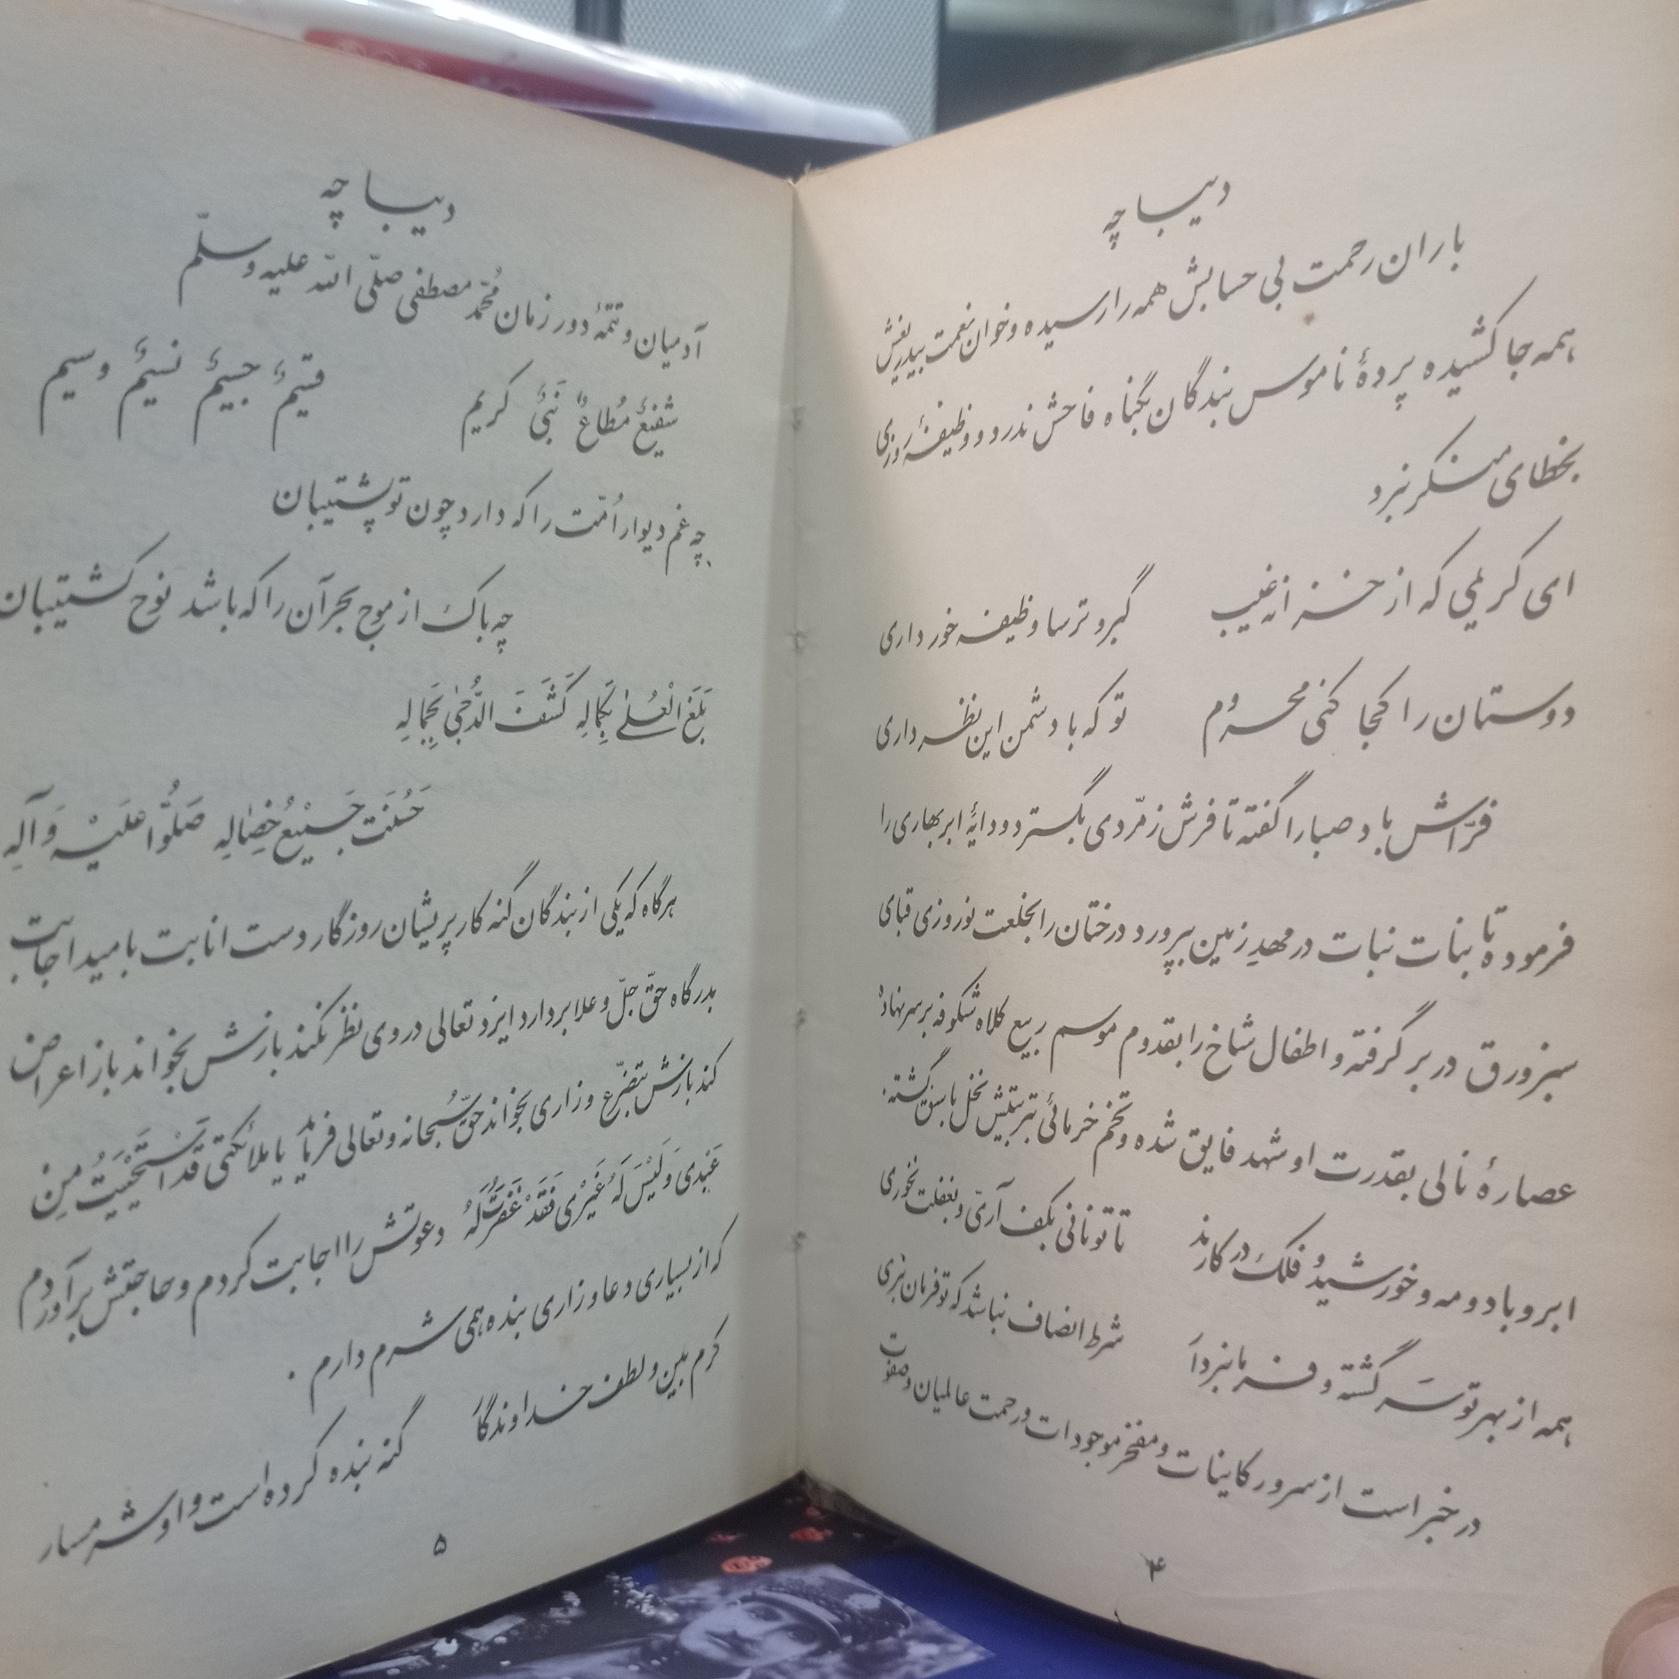 دیباچه
باران رحمت بی حسابش همه را رسیده و خوان نعمت بیدریغش
همه جا کشیده پردهٔ ناموس بندگان بگناه فاحش ندرد و وظیفهٔ روزی
بخطای منکر نبرد
ای کریمی که از خزانه غیب گبر و ترسا وظیفه خور داری
دوستان را کجا کنی محروم تو که با دشمن این نظر داری
فرّاش باد صبا را گفته تا فرش زمّردی بگسترد و دایهٔ ابر بهاری را
فرموده تا بنات نبات در مهدِ زمین بپرورد درختان را بخلعت نوروزی قبای
سبز ورق در بر گرفته و اطفال شاخ را بقدوم موسم ربیع کلاه شکوفه بر سر نهاده
عصارهٔ نالی بقدرت او شهد فایق شده و تخم خرمائی بتربیتش نخل باسق گشته.
ابر و باد و مه و خورشید و فلک در کارند تا تو نانی بکف آری و بغفلت نخوری
همه از بهر تو سرگشته و فرمانبردار شرط انصاف نباشد که تو فرمان نبری
در خبر است از سرور کاینات و مفخر موجودات و رحمت عالمیان و صفوت
۴
دیباچه
آدمیان و تتمّهٔ دور زمان مُحمّد مصطفی صلّی اللّه علیه و سلّم
شفیعٌ مُطاعٌ نَبیٌ کریم قسیمٌ جسیمٌ نسیمٌ وسیم
چه غم دیوار اُمّت را که دارد چون تو پشتیبان
چه باک از موج بحر آن را که باشد نوح کشتیبان
بَلَغَ الْعُلیٰ بِکَمالِهِ کَشَفَ الدُّجیٰ بِجَمالِهِ
حَسُنَتْ جَمیْعُ خِصٰالِهِ صَلُّوا عَلَیْهِ وَ آلِهِ
هرگاه که یکی از بندگان گنه کار پریشان روزگار دست انابت بامید اجابت
بدرگاه حقّ جلّ و علا بردارد ایزد تعالی در وی نظر نکند بازش بخواند باز اعراض
کند بازش بتضرّع و زاری بخواند حقّ سُبحانه و تعالی فرماید یا ملائکتی قَد اسْتَحْیَیْتُ مِنْ
عَبْدی وَ لَیْسَ لَهُ غَیْری فَقَدْ غَفَرْتُ لَهُ دعوتش را اجابت کردم و حاجتش برآوردم
که از بسیاری دعا و زاری بنده همی شرم دارم .
کرم بین و لطف خداوندگار گنه بنده کرده است و او شرمسار
۵